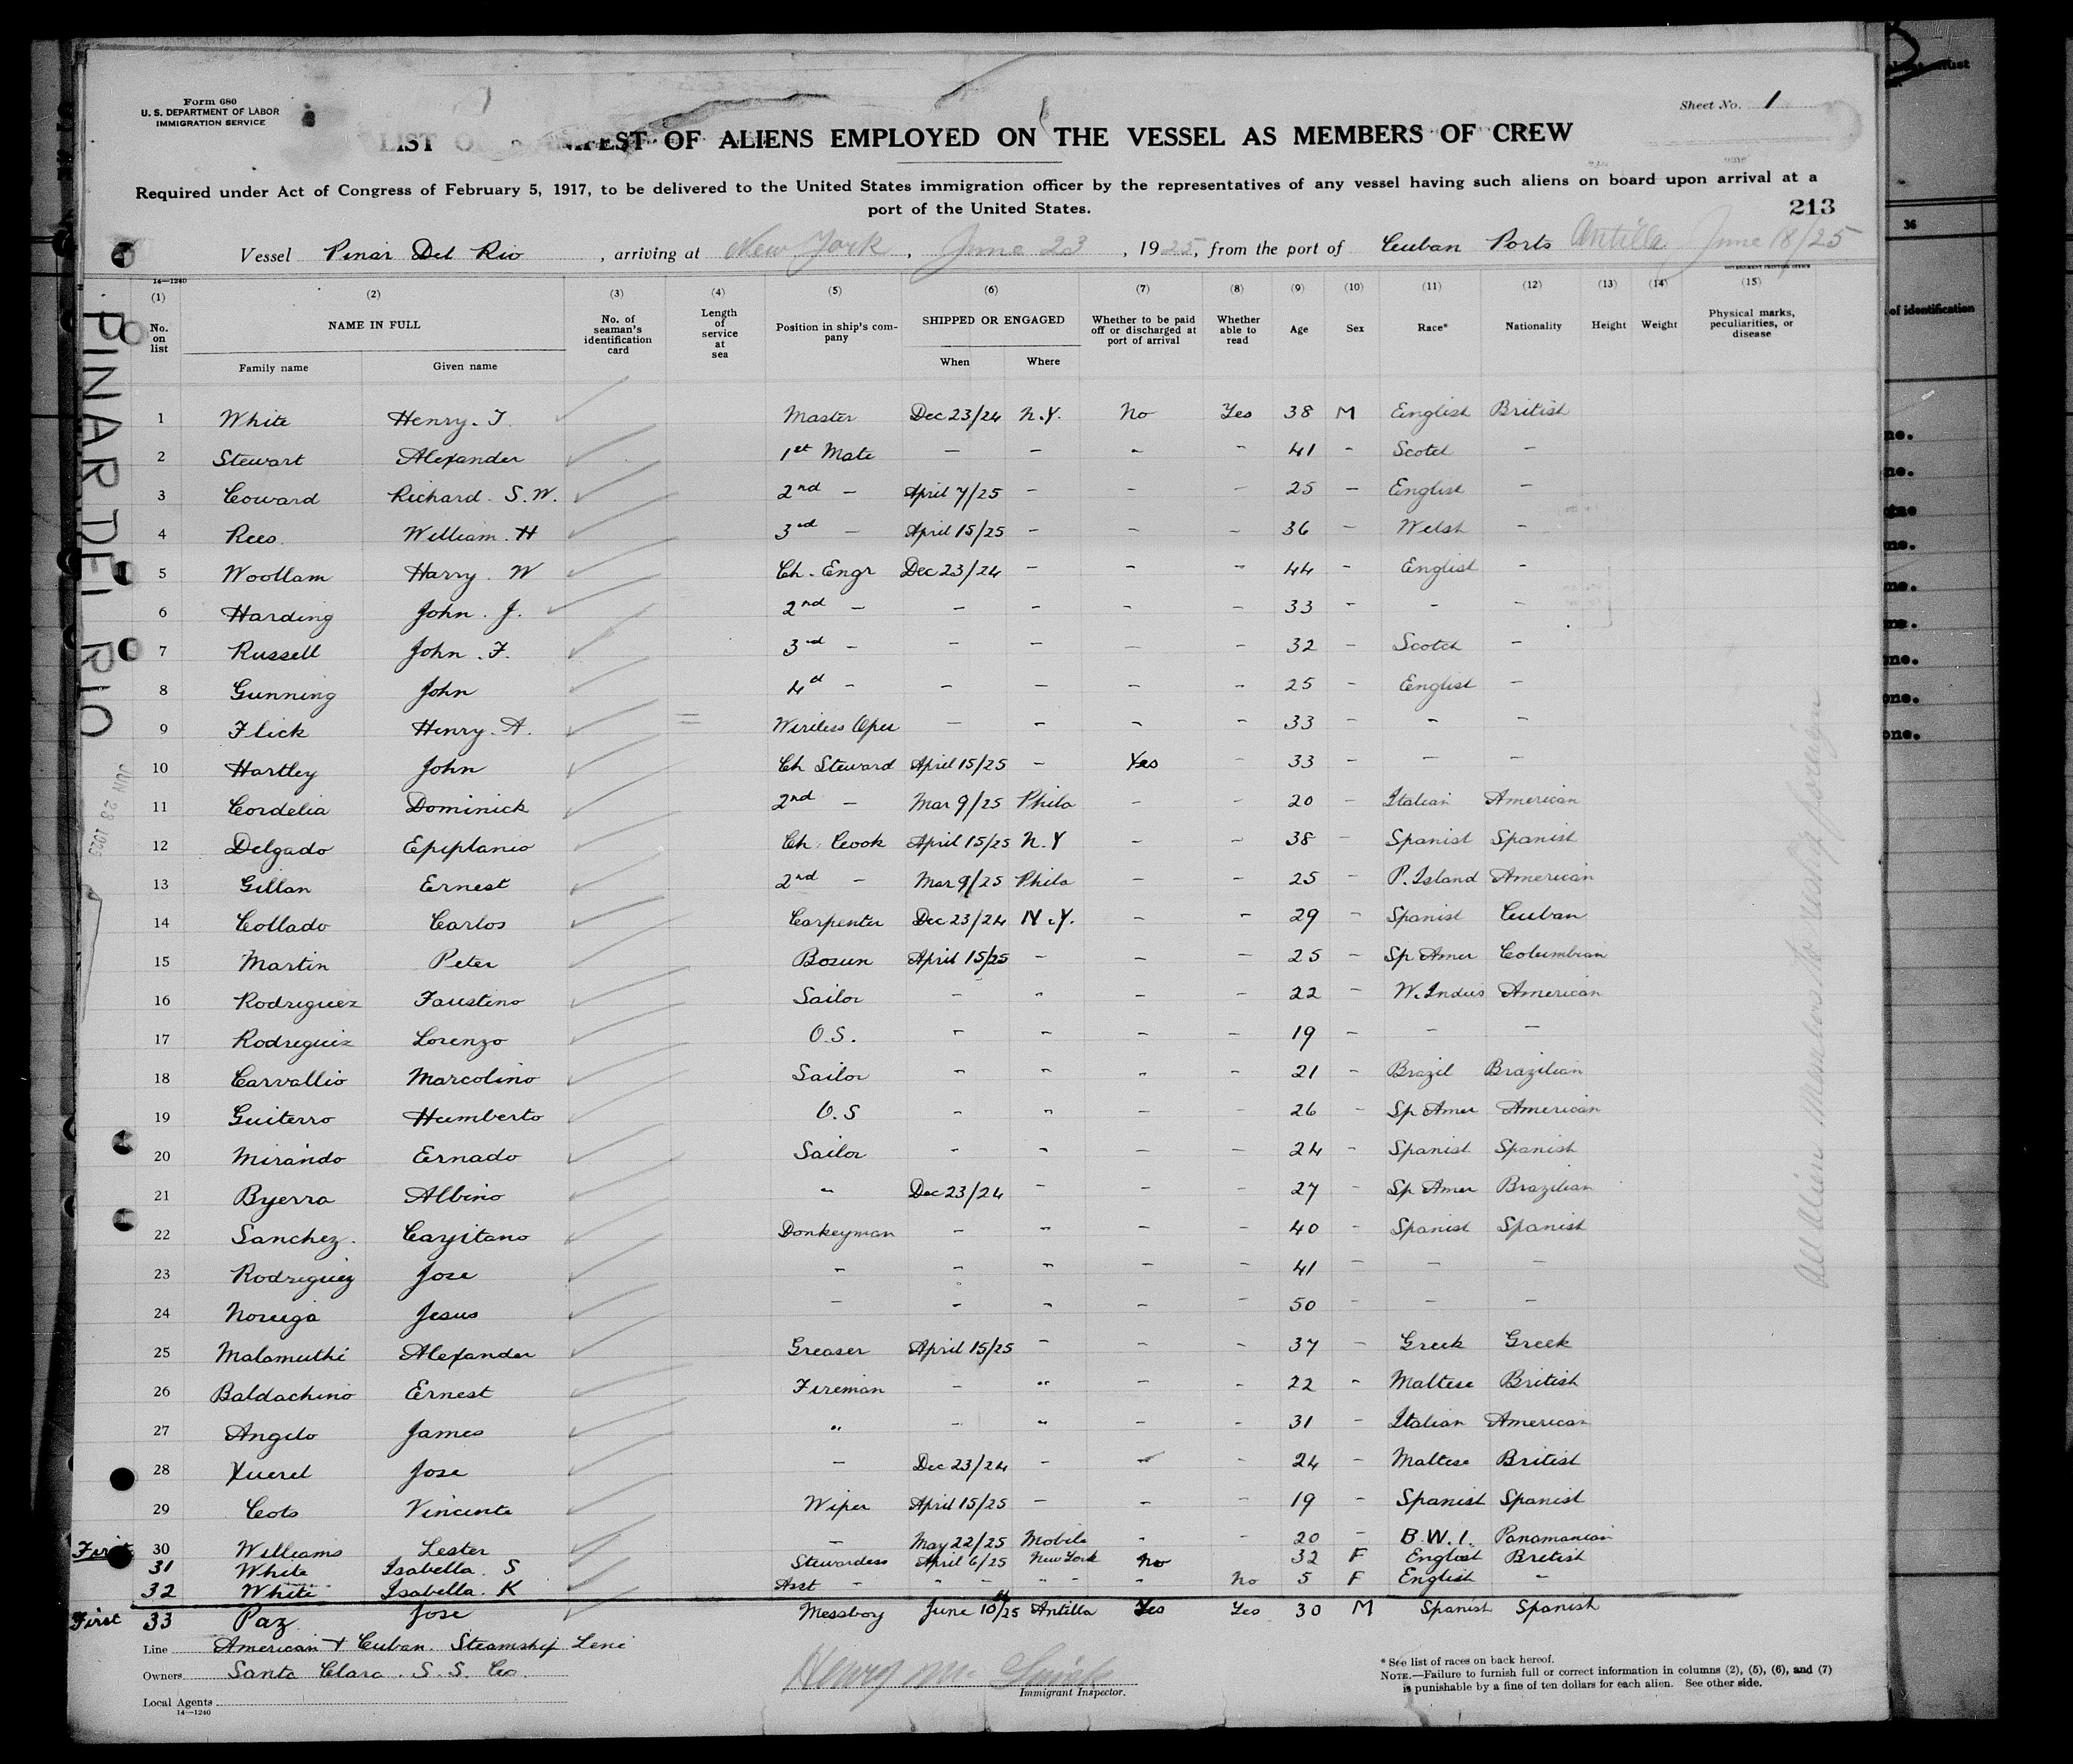 Form 680
U. S. DEPARTMENT OF LABOR
IMMIGRATION SERVICE
Sheet No. 1
LIST OF MANIFEST OF ALIENS EMPLOYED ON THE VESSEL AS MEMBERS OF CREW
Required under Act of Congress of February 5, 1917, to be delivered to the United States immigration officer by the representatives of any vessel having such aliens on board upon arrival at a
port of the United States.
213
Vessel Pinar Del Rio, arriving at New York, June 23, 1925, from the port of Cuban Ports Antilla June 18/25
GOVERNMENT PRINTING OFFICE
14—1240
(1) (2) (3) (4) (5) (6) (7) (8) (9) (10) (11) (12) (13) (14) (15)
No. on list NAME IN FULL No. of seaman's identification card Length of service at sea Position in ship's company SHIPPED OR ENGAGED Whether to be paid off or discharged at port of arrival Whether able to read Age Sex Race* Nationality Height Weight Physical marks, peculiarities, or disease
Family name Given name When Where
1 White Henry. T. Master Dec 23/24 N.Y. No Yes 38 M English British
2 Stewart Alexander 1st Mate — — - - 41 - Scotch —
3 Coward Richard. S. W. 2nd — April 7/25 - - - 25 - English -
4 Rees William. H 3rd — April 15/25 - - - 36 - Welsh -
5 Woollam Harry. W Ch. Engr Dec 23/24 - - - 44 - English -
6 Harding John. J. 2nd — - - - - 33 - - -
7 Russell John. F. 3rd - - - - - 32 - Scotch -
8 Gunning John 4th - - - - - 25 - English -
9 Flick Henry. A. Wireless Oper - - - - 33 - - -
10 Hartley John Ch Steward April 15/25 - Yes - 33 - - -
11 Cordelia Dominick 2nd — Mar 9/25 Phila - - 20 - Italian American
12 Delgado Epiplanio Ch. Cook April 15/25 N.Y - - 38 - Spanish Spanish
13 Gillan Ernest 2nd — Mar 9/25 Phila - - 25 - P. Island American
14 Collado Carlos Carpenter Dec 23/24 N.Y. - - 29 - Spanish Cuban
15 Martin Peter Bosun April 15/25 - - - 25 - Sp Amer Columbian
16 Rodriguez Faustino Sailor - " - - 22 - W. Indies American
17 Rodriguez Lorenzo O.S. - " - - 19 - - -
18 Carvallio Marcolino Sailor - " - - 21 - Brazil Brazilian
19 Guiterro Humberto O.S - " - - 26 - Sp Amer American
20 Mirando Ernado Sailor - " - - 24 - Spanish Spanish
21 Byerra Albino " Dec 23/24 - - - 27 - Sp Amer Brazilian
22 Sanchez. Cayitano Donkeyman - " - - 40 - Spanish Spanish
23 Rodriguez Jose " - " - - 41 - - -
24 Noreiga Jesus - - " - - 50 - - -
25 Malamuthi Alexander Greaser April 15/25 - - - 37 - Greek Greek
26 Baldachino Ernest Fireman - " - - 22 - Maltese British
27 Angelo James " - " - - 31 - Italian American
28 Xuereb Jose - Dec 23/24 - - - 24 - Maltese British
29 Cots Vincente Wiper April 15/25 - - - 19 - Spanish Spanish
First 30 Williams Lester - May 22/25 Mobile - - 20 - B.W.I. Panamanian
31 White Isabella. S Stewardess April 6/25 New York No 32 F English British
32 White Isabella. K Asst - " - " " - No 5 F English -
First 33 Paz Jose Messboy June 10th/25 Antilla Yes Yes 30 M Spanish Spanish
Line American & Cuban. Steamship Line
Owners Santa Clara. S. S. Co.
Local Agents
14—1240
Immigrant Inspector.
* See list of races on back hereof.
NOTE.—Failure to furnish full or correct information in columns (2), (5), (6), and (7)
is punishable by a fine of ten dollars for each alien. See other side.
PINAR DEL RIO
JUN 23 1925
All alien members to reship foreign
36
of identification